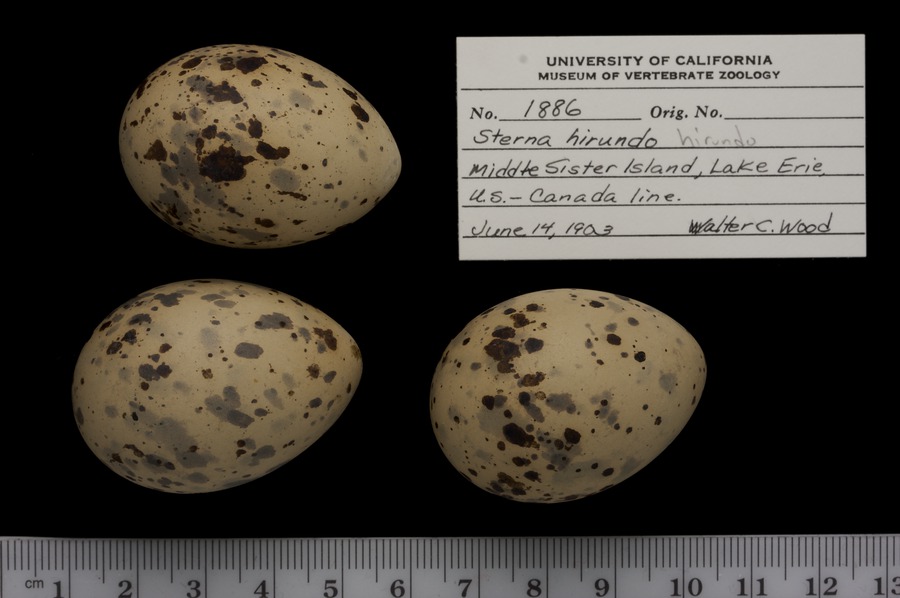 UNIVERSITY OF CALIFORNIA
MUSEUM OF VERTEBRATE ZOOLOGY
No. 1886 Orig. No.
Sterna hirundo hirundo
Middle Sister Island, Lake Erie,
U.S. - Canada line.
June 14, 1903 Walter C. Wood
cm 1 2 3 4 5 6 7 8 9 10 11 12 13